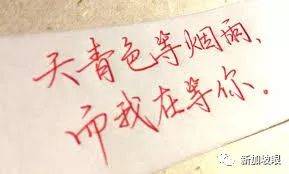 天青色等烟雨、
而我在等你。
新加坡眼